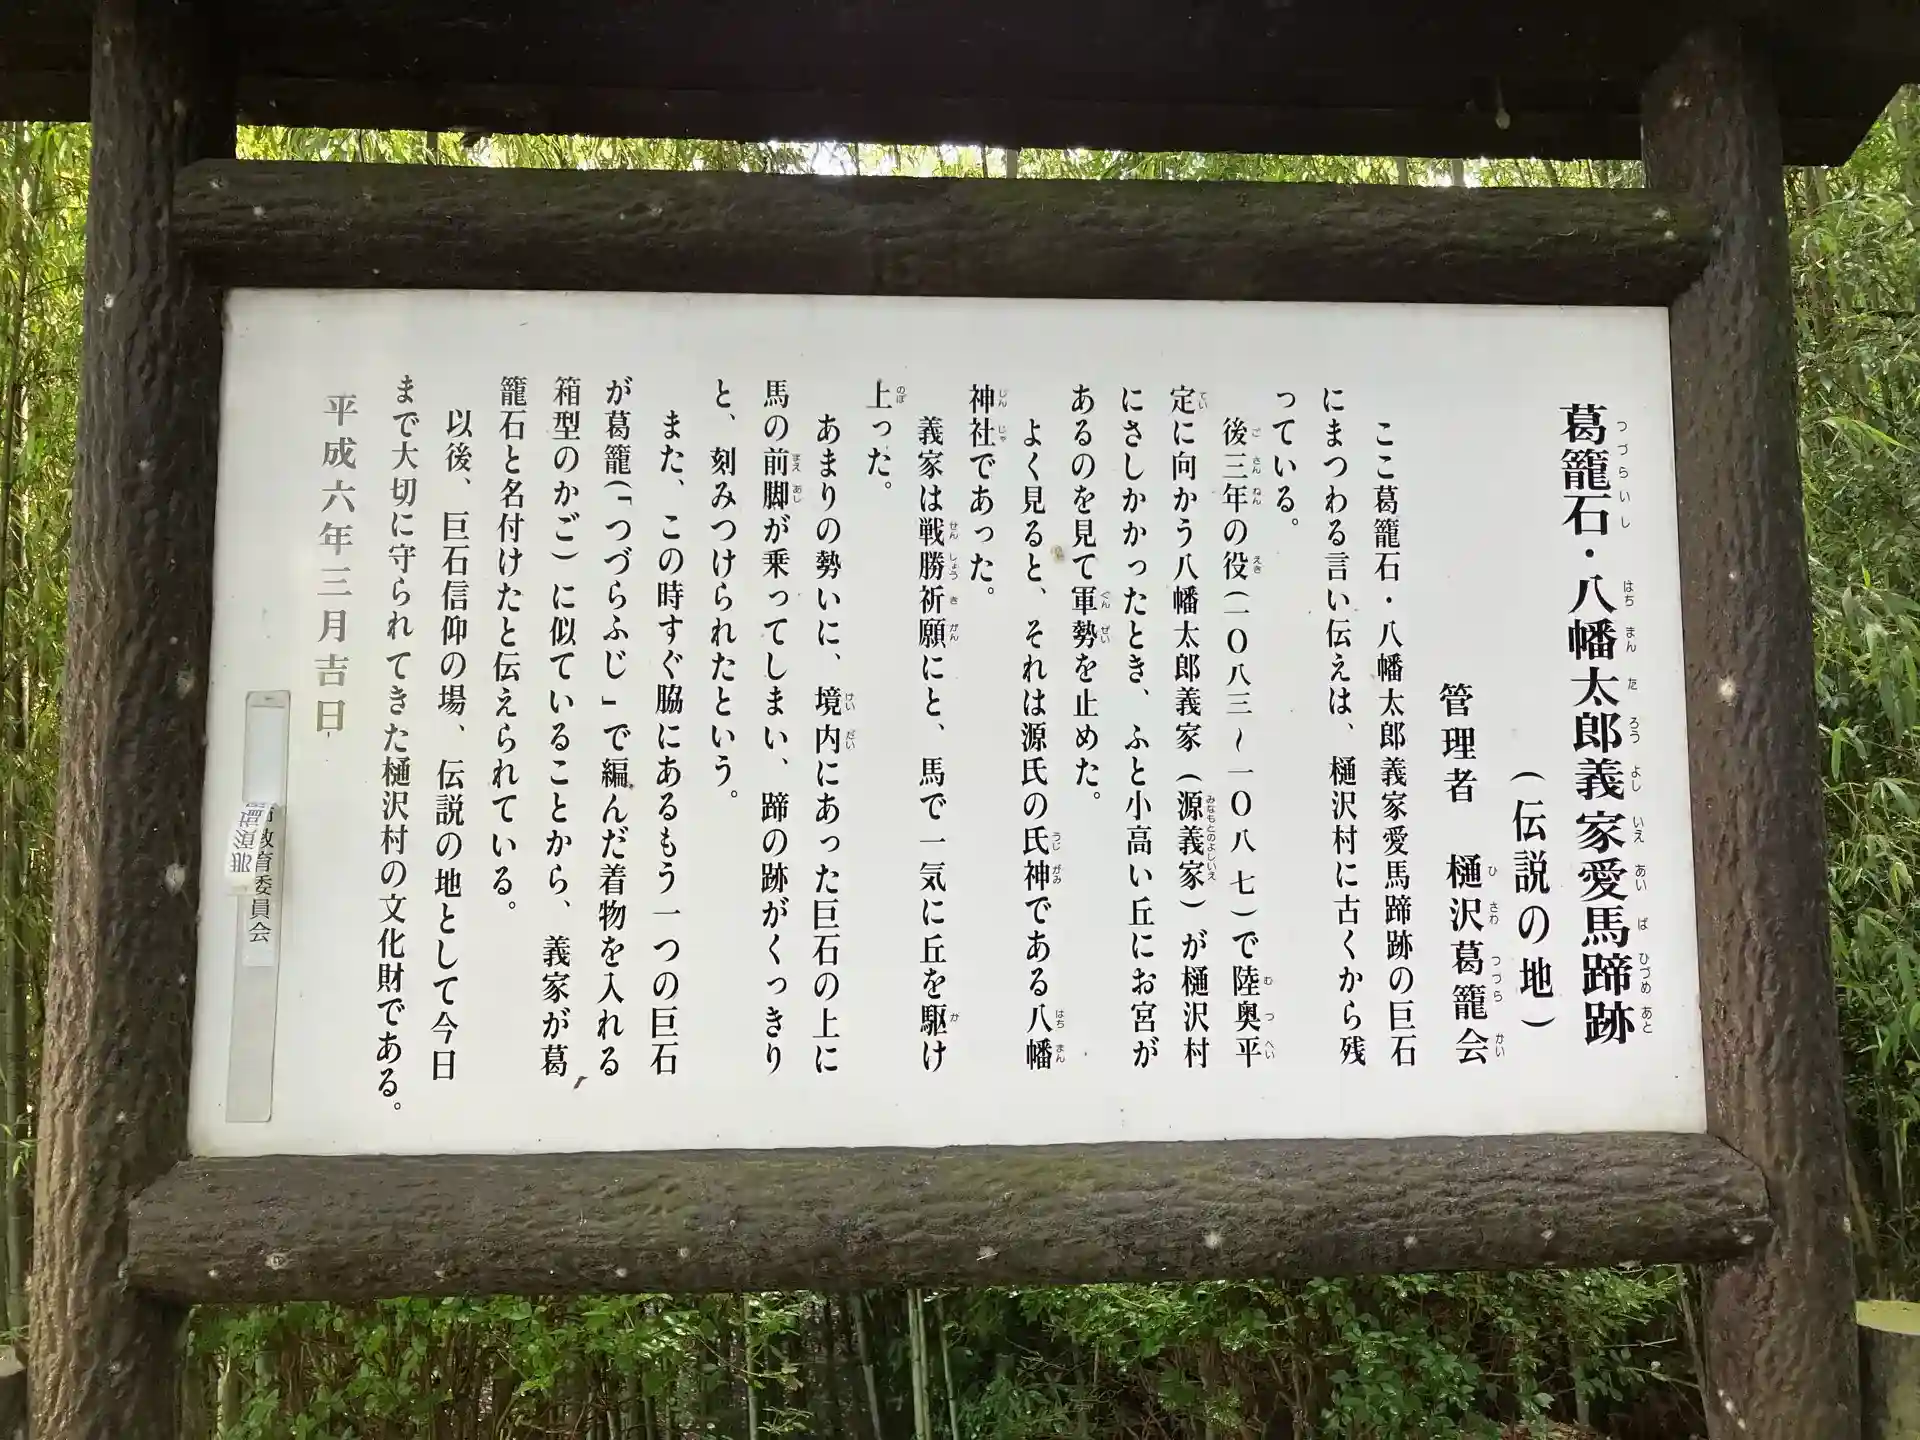 葛籠石・八幡太郎義家愛馬蹄跡
(伝説の地)
管理者 樋沢葛籠会
ここ葛籠石・八幡太郎義家愛馬蹄跡の巨石
にまつわる言い伝えは、樋沢村に古くから残
っている。
後三年の役(一〇八三~一〇八七)で陸奥平
定に向かう八幡太郎義家(源義家)が樋沢村
にさしかかったとき、ふと小高い丘にお宮が
あるのを見て軍勢を止めた。
よく見ると、それは源氏の氏神である八幡
神社であった。
義家は戦勝祈願にと、馬で一気に丘を駆け
上った。
あまりの勢いに、境内にあった巨石の上に
馬の前脚が乗ってしまい、蹄の跡がくっきり
と、刻みつけられたという。
また、この時すぐ脇にあるもう一つの巨石
が葛籠(「つづらふじ」で編んだ着物を入れる
箱型のかご)に似ていることから、義家が葛
籠石と名付けたと伝えられている。
以後、巨石信仰の場、伝説の地として今日
まで大切に守られてきた樋沢村の文化財である。
平成六年三月吉日
教育委員会